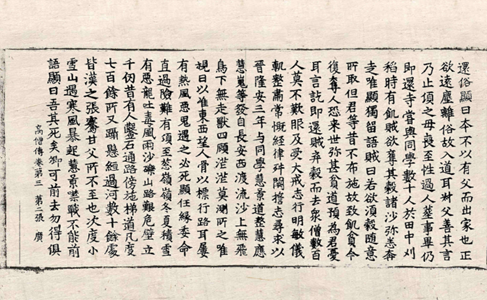 還俗顯曰本不以有父而出家也正
欲遠塵離俗故入道耳叔父善其言
乃止頃之母喪至性過人葬事畢仍
即還寺嘗與同學數十人於田中刈
稻時有飢賊欲奪其穀諸沙弥悉奔
走唯顯獨留語賊曰若欲須穀隨意
所取但君等昔不布施故致飢貧今
復奪人恐來世弥甚貧道預為君憂
耳言訖即還賊弃穀而去衆僧數百
人莫不歎服及受大戒志行明敏儀
軌整肅常慨經律舛闕誓志尋求以
晉隆安三年與同學慧景道整慧應
慧嵬等發自長安西渡流沙上無飛
鳥下無走獸四顧茫茫莫測所之唯
視日以准東西望人骨以標行路耳屢
有熱風惡鬼遇之必死顯任緣委命
直過險難有頃至葱嶺嶺冬夏積雪
有惡龍吐毒風雨沙礫山路艱危壁立
千仞昔有人鑿石通路傍施梯道凡度
七百餘所又躡懸絙過河數十餘處
皆漢之張騫甘父所不至也次度小
雪山遇寒風暴起慧景噤戰不能前
語顯曰吾其死矣卿可前去勿得俱
高僧傳卷第三 第二張 廣